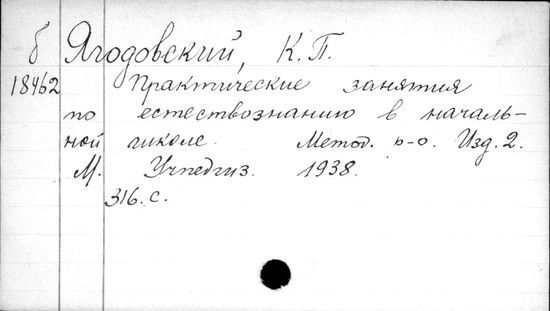 б Ягодовский, К.П.
18462 Практические занятия
по естествознанию в началь-
ной школе. Метод. р-о. Изд. 2.
М. Учпедгиз. 1938.
316. с.